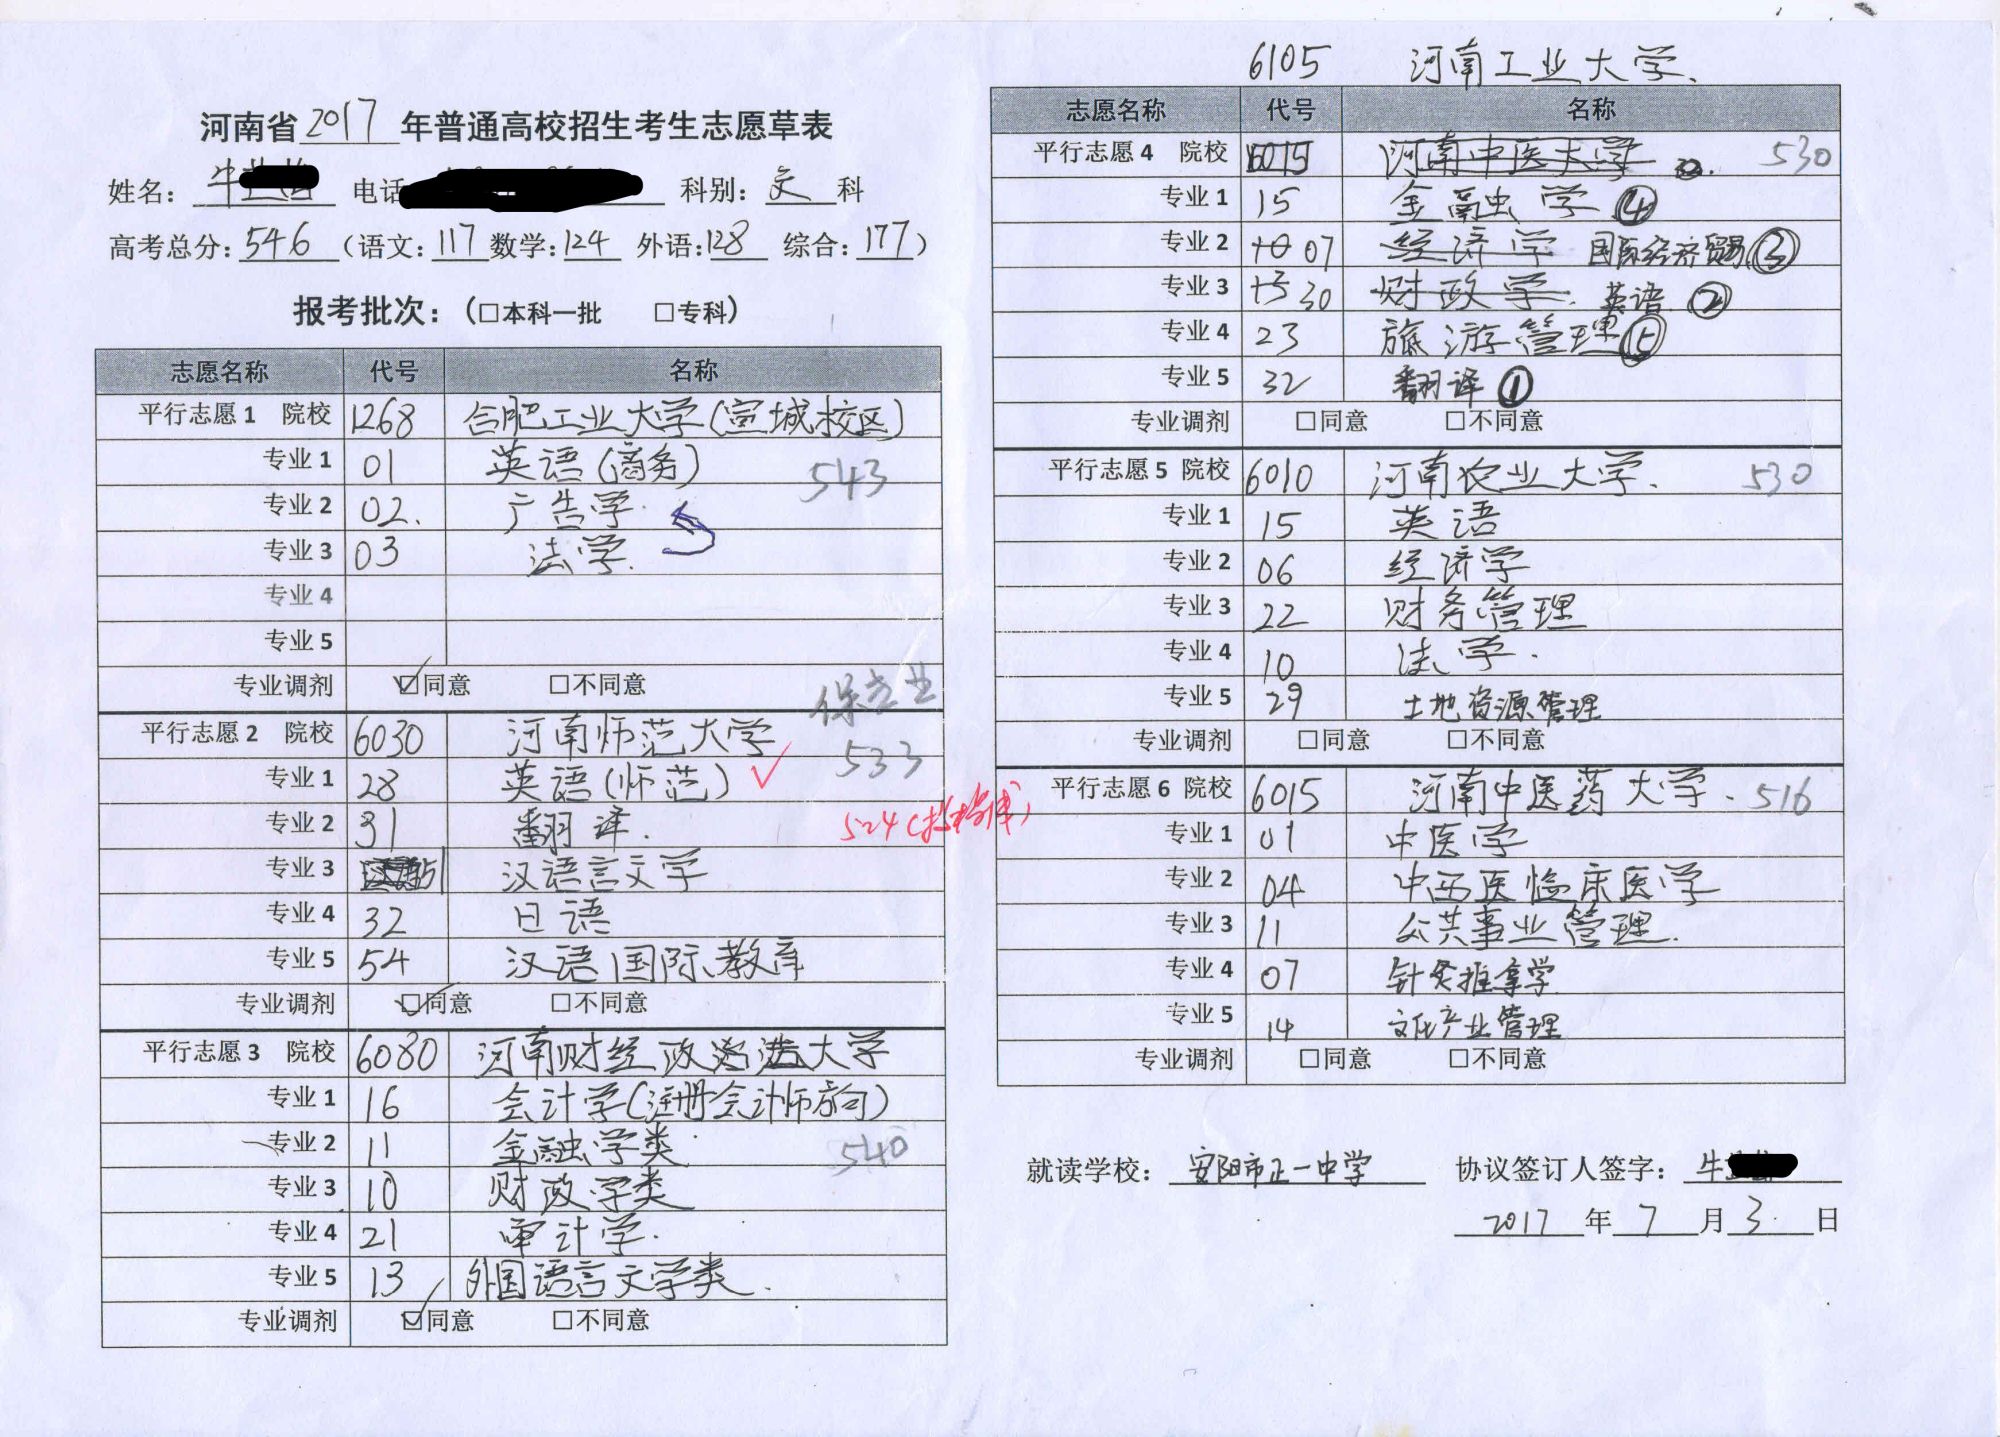 河南省2017年普通高校招生考生志愿草表
姓名：牛 电话 科别：文科
高考总分：546（语文：117数学：124 外语：128 综合：177）
报考批次：（□本科一批 □专科）
志愿名称 代号 名称
平行志愿1 院校 1268 合肥工业大学(宣城校区)
专业1 01 英语(商务) 543
专业2 02. 广告学.
专业3 03 法学.
专业4
专业5
专业调剂 ☑同意 □不同意
平行志愿2 院校 6030 河南师范大学 533
专业1 28 英语(师范) ✓
专业2 31 翻译. 524(
专业3 汉语言文学
专业4 32 日语
专业5 54 汉语国际教育
专业调剂 ☑同意 □不同意
平行志愿3 院校 6080 河南财经政法大学
专业1 16 会计学(注册会计师方向)
专业2 11 金融学类. 540
专业3 10 财政学类
专业4 21 审计学.
专业5 13 外国语言文学类.
专业调剂 ☑同意 □不同意
6105 河南工业大学.
志愿名称 代号 名称
平行志愿4 院校 6015 河南中医大学 530
专业1 15 金融学④
专业2 10 07 经济学 国际经济贸易③
专业3 15 30 财政学. 英语②
专业4 23 旅游管理⑤
专业5 32 翻译①
专业调剂 □同意 □不同意
平行志愿5 院校 6010 河南农业大学. 530
专业1 15 英语
专业2 06 经济学
专业3 22 财务管理
专业4 10 法学.
专业5 29 土地资源管理
专业调剂 □同意 □不同意
平行志愿6 院校 6015 河南中医药大学. 516
专业1 01 中医学
专业2 04 中西医临床医学
专业3 11 公共事业管理.
专业4 07 针灸推拿学
专业5 14 文化产业管理
专业调剂 □同意 □不同意
就读学校：安阳市正一中学 协议签订人签字：牛
2017年7月3日